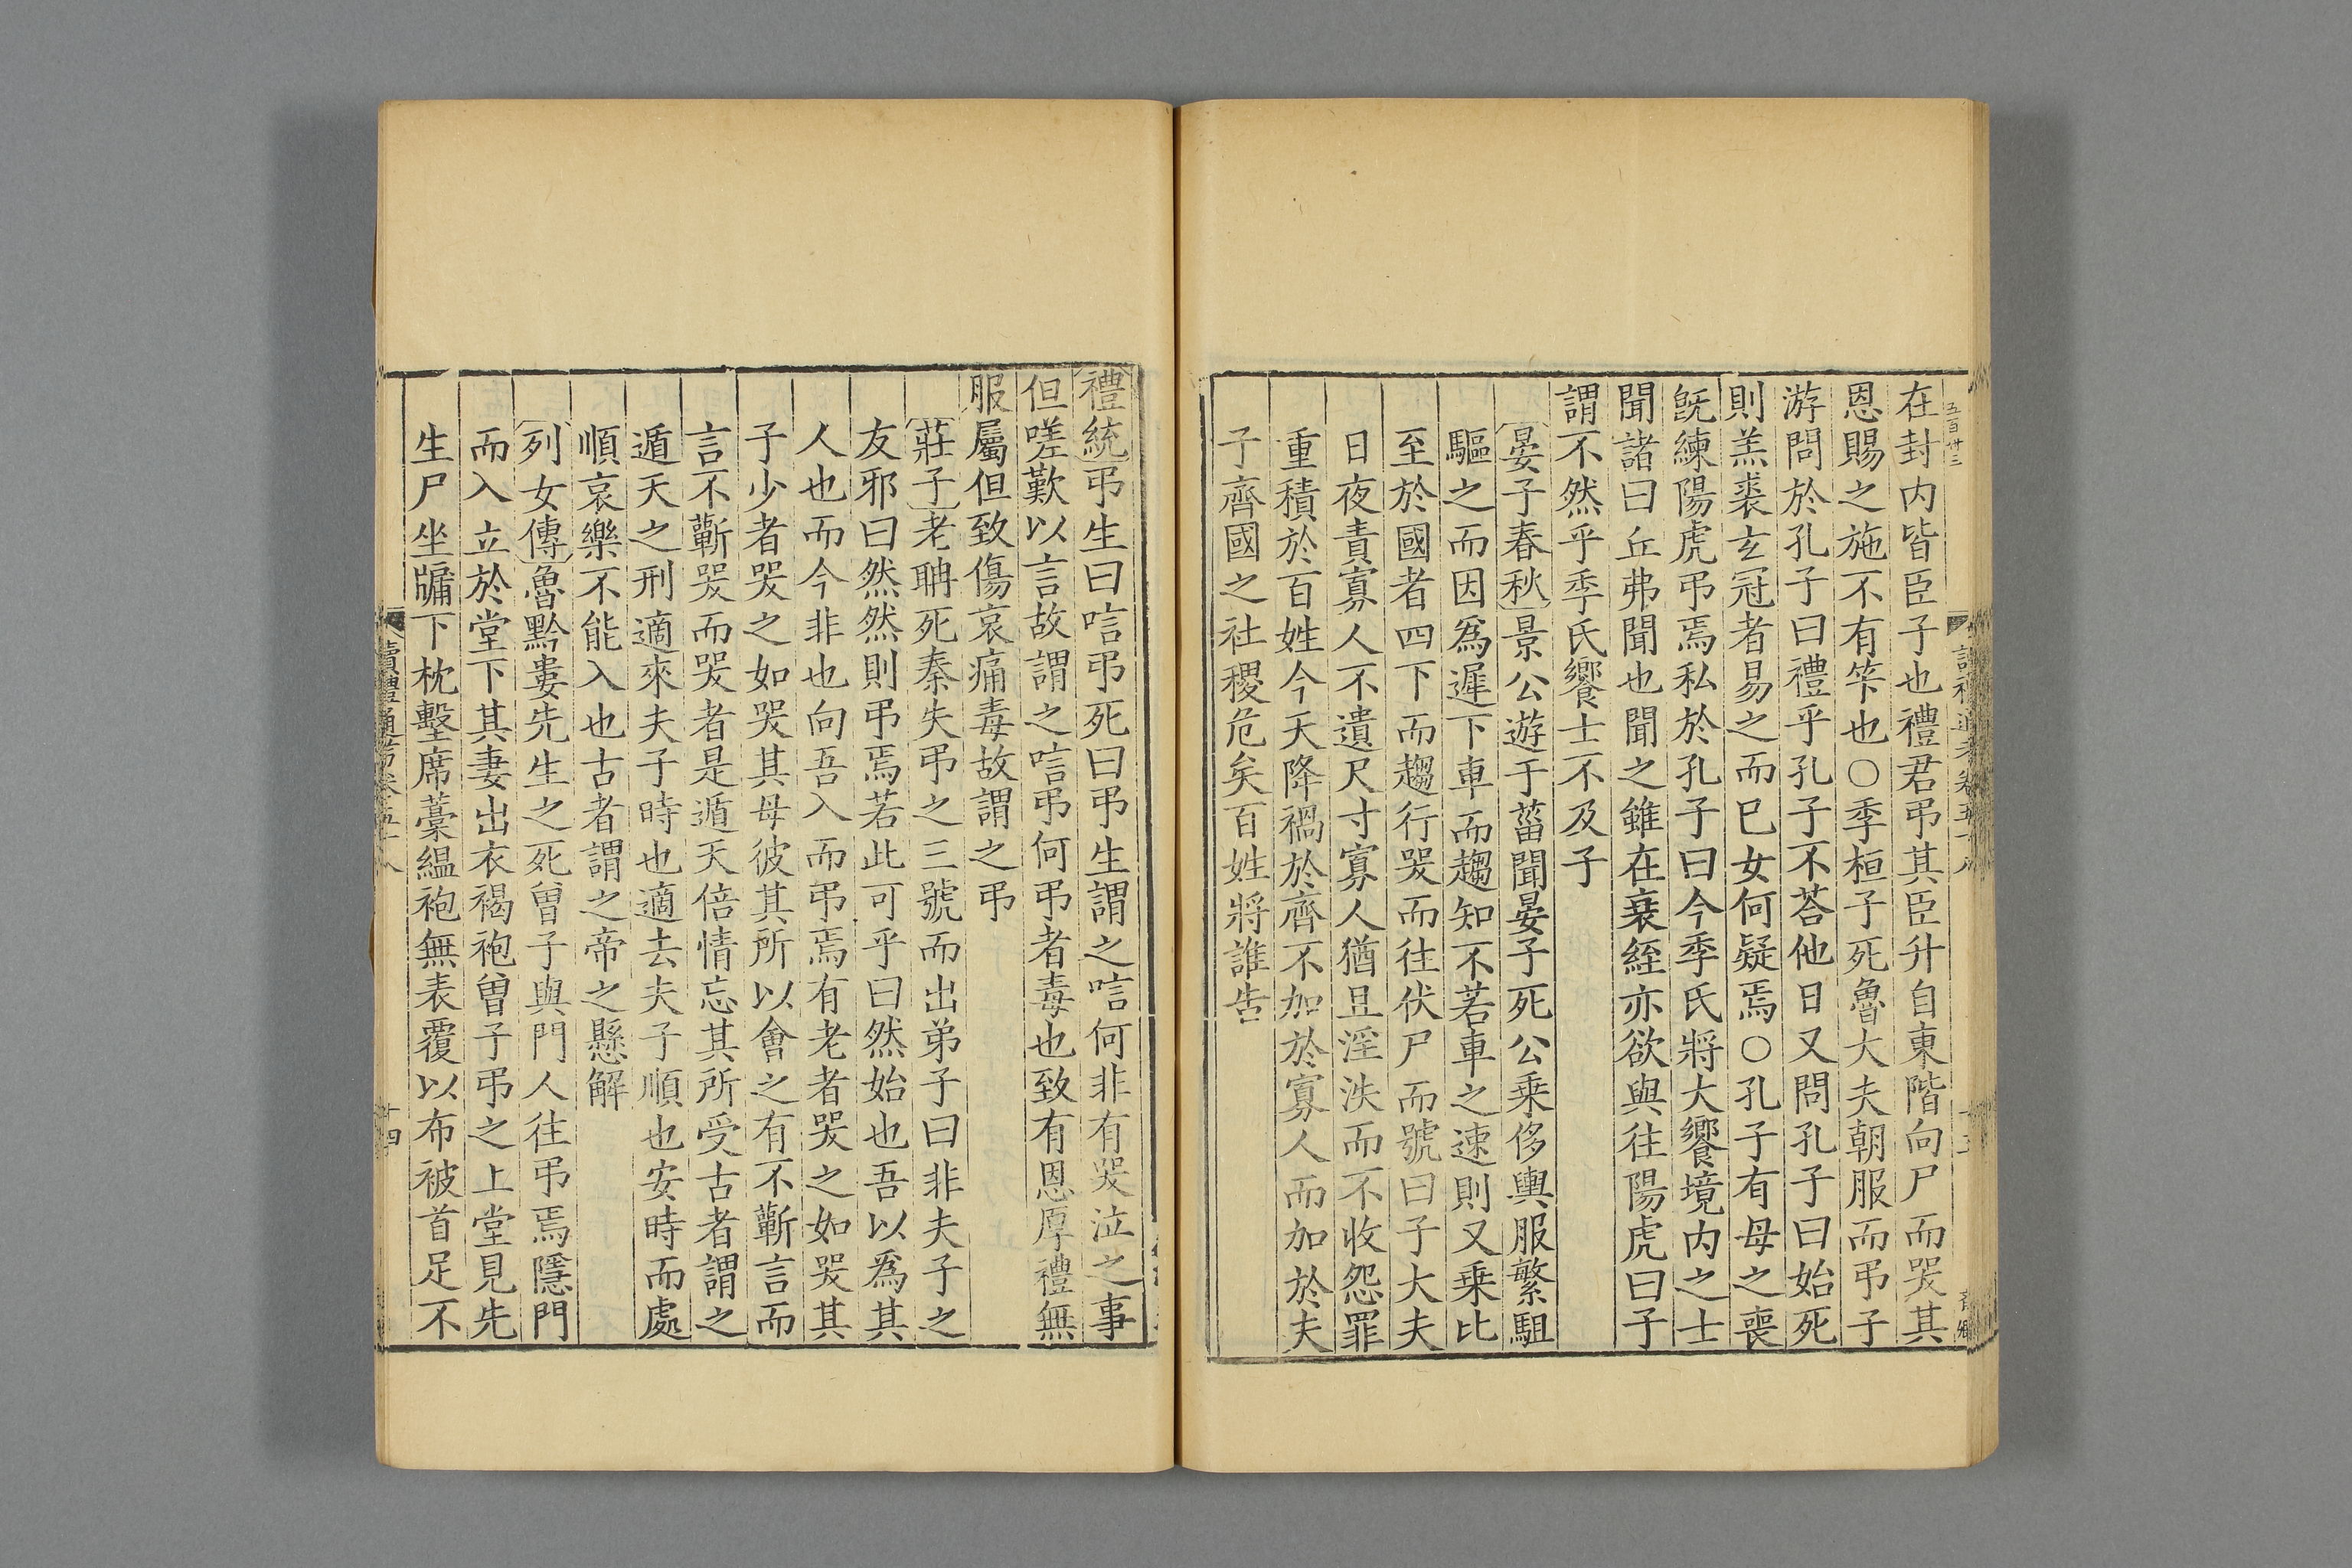 五百卅三
在封内皆臣子也禮君弔其臣升自東階向尸而哭其
恩賜之施不有筭也○季桓子死魯大夫朝服而弔子
游問於孔子曰禮乎孔子不荅他日又問孔子曰始死
則羔裘玄冠者易之而已女何疑焉○孔子有母之喪
旣練陽虎弔焉私於孔子曰今季氏將大饗境内之士
聞諸曰丘弗聞也聞之雖在衰絰亦欲與往陽虎曰子
謂不然乎季氏饗士不及子
晏子春秋景公遊于菑聞晏子死公乗侈輿服繁駔
驅之而因爲遲下車而趨知不若車之速則又乗比
至於國者四下而趨行哭而往伏尸而號曰子大夫
日夜責寡人不遺尺寸寡人猶且淫泆而不收怨罪
重積於百姓今天降禍於齊不加於寡人而加於夫
子齊國之社稷危矣百姓將誰告
禮統弔生曰唁弔死曰弔生謂之唁何非有哭泣之事
但嗟歎以言故謂之唁弔何弔者毒也致有恩厚禮無
服屬但致傷哀痛毒故謂之弔
莊子老聃死秦失弔之三號而出弟子曰非夫子之
友邪曰然然則弔焉若此可乎曰然始也吾以爲其
人也而今非也向吾入而弔焉有老者哭之如哭其
子少者哭之如哭其母彼其所以會之有不蘄言而
言不蘄哭而哭者是遁天倍情忘其所受古者謂之
遁天之刑適來夫子時也適去夫子順也安時而處
順哀樂不能入也古者謂之帝之懸解
列女傳魯黔婁先生之死曾子與門人往弔焉隱門
而入立於堂下其妻出衣褐袍曾子弔之上堂見先
生尸坐牖下枕墼席藁緼袍無表覆以布被首足不
讀禮通考卷五十八
十四